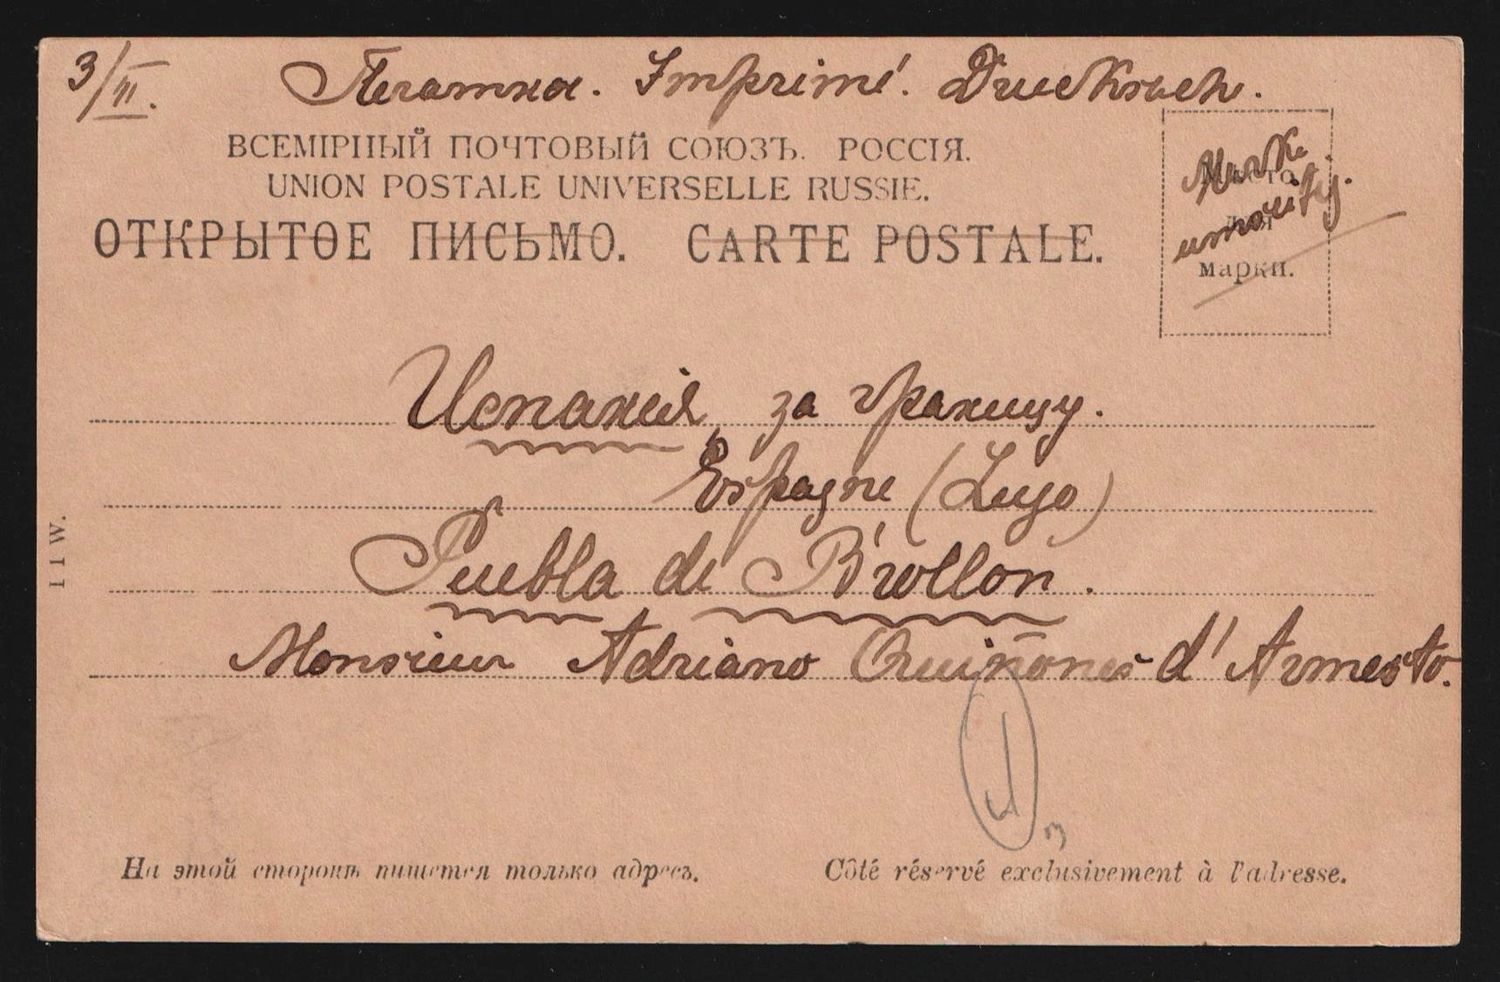 3/II.
Печатка. Imprimé. Drucksach.
ВСЕМІРНЫЙ ПОЧТОВЫЙ СОЮЗЪ. РОССІЯ.
UNION POSTALE UNIVERSELLE RUSSIE.
ОТКРЫТОЕ ПИСЬМО. CARTE POSTALE.
Mark
Мѣсто
для
марки.
Испанія за границу.
Espagne (Lugo)
Puebla de Brollon.
Monsieur Adriano Quiñones d'Armesto.
11W.
На этой сторонѣ пишется только адресъ.
Côté réservé exclusivement à l'adresse.